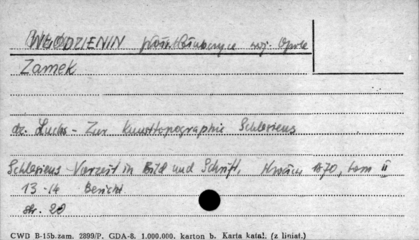 WŁODZIENIN pow. Głubczyce woj. Opole
Zamek
dr. Luchs - Zur Kunsttopographie Schlesiens
Schlesiens Vorzeit in Bild und Schrift. 1870, tom II
13-14 Bericht
str. 20
CWD B-15b.zam. 2899/P. GDA-8. 1.000.000. karton b. Karta katal. (z liniat.)